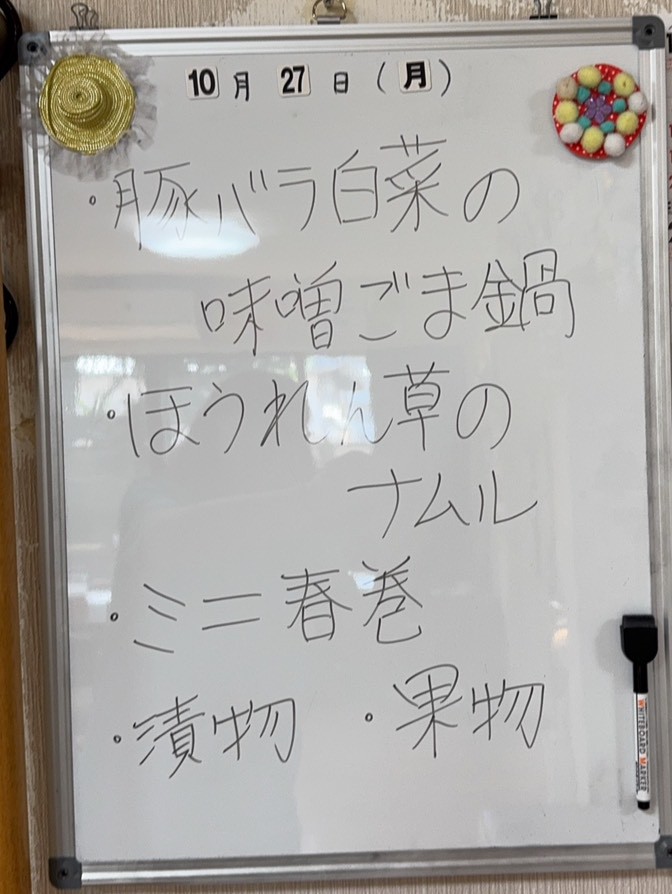 10月27日(月)
・豚バラ白菜の
味噌ごま鍋
・ほうれん草の
ナムル
・ミニ春巻
・漬物 ・果物
WHITEBOARD MARKER